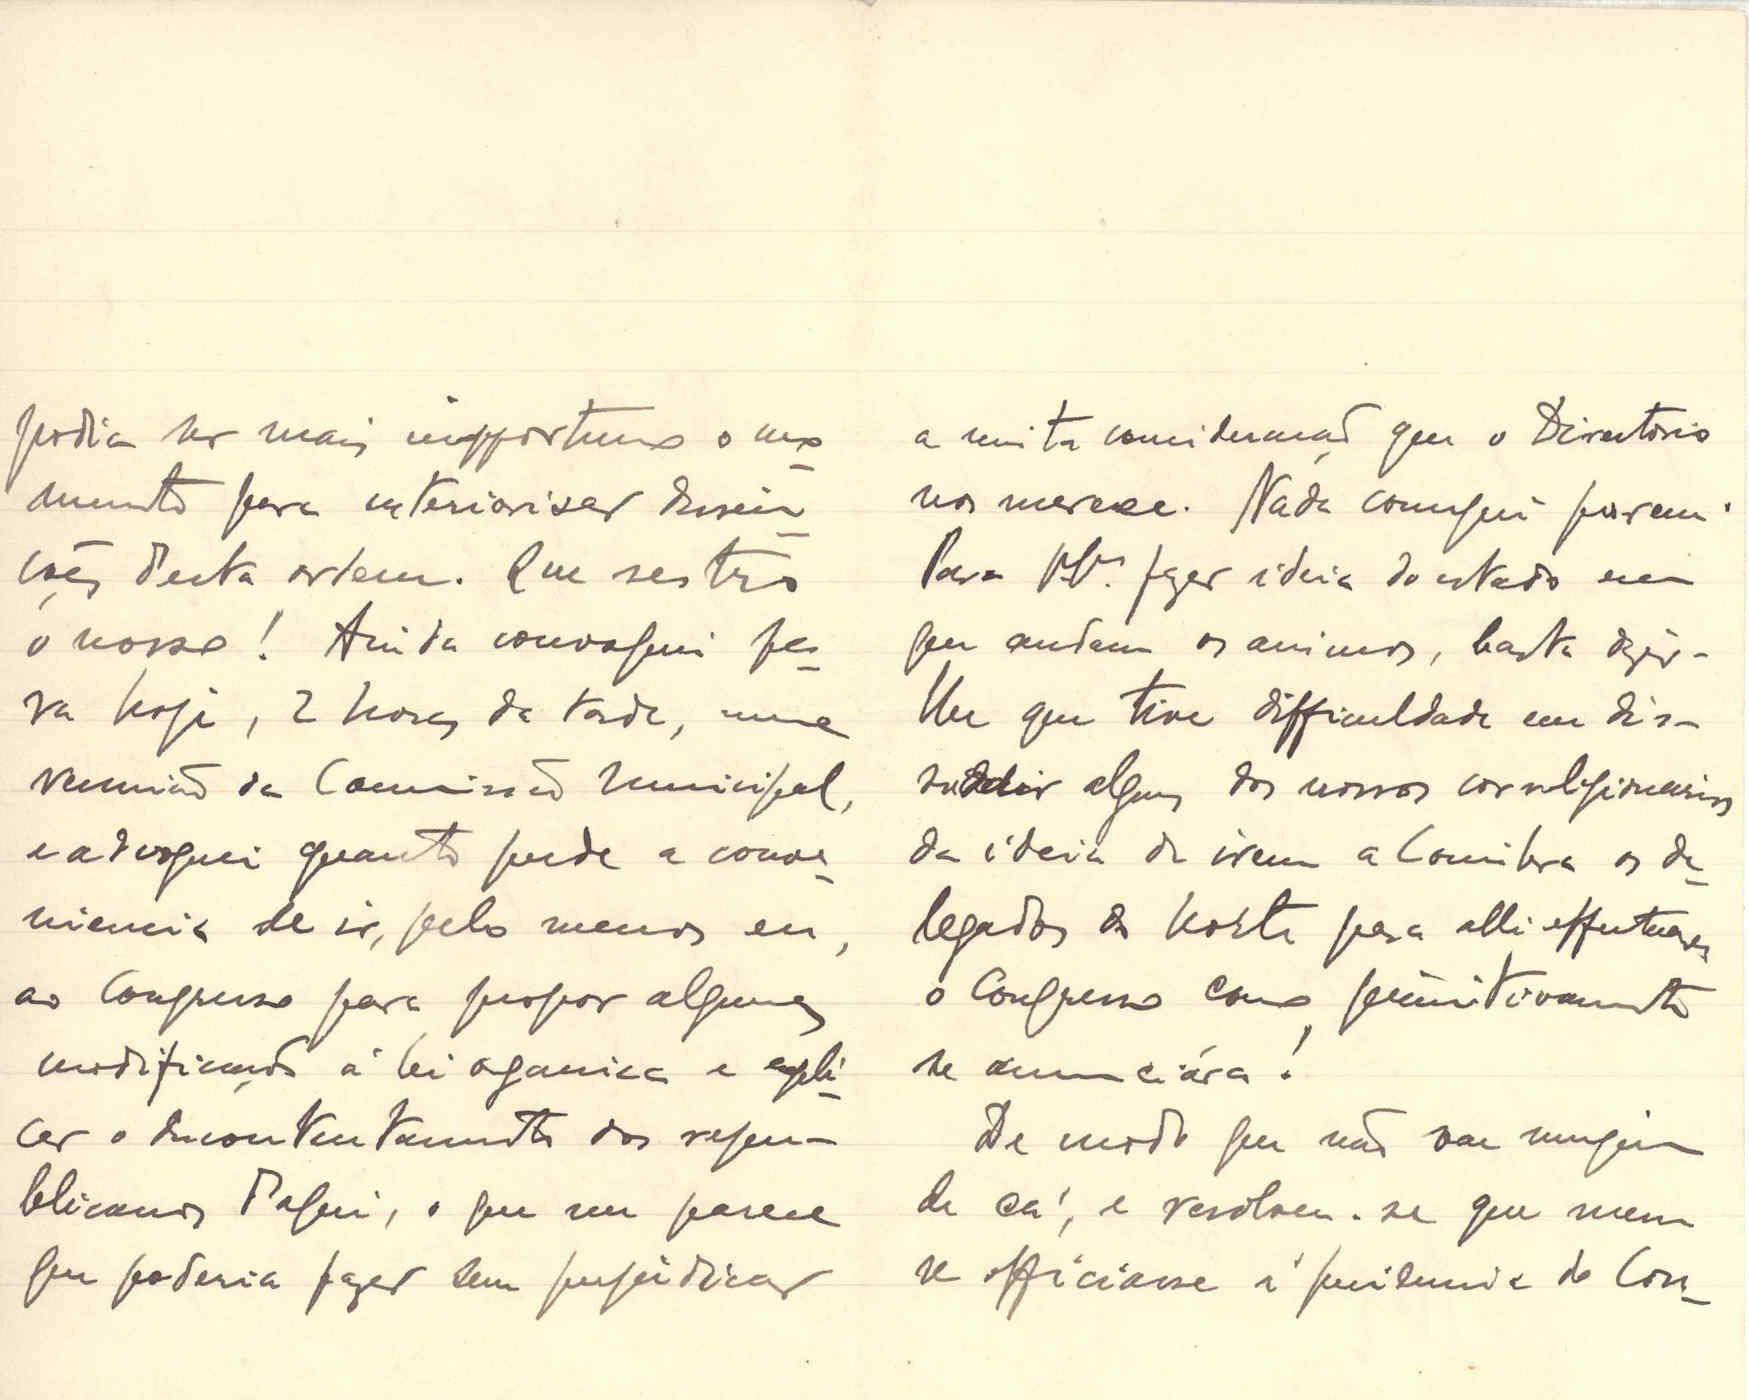 podia ser mais inopportuno o mo-
mento para exteriorisar dissen-
ções desta ordem. Que sestro
o nosso! Ainda convoquei pa-
ra hoje, 2 horas da tarde, uma
reunião da Commissão Municipal,
e advoguei quanto pude a conve-
niencia de ir, pelo menos eu,
ao Congresso para propor algumas
modificações á lei organica e expli-
car o descontentamento dos repu-
blicanos d'aqui, o que me parece
que poderia fazer sem prejudicar
a muita consideração que o Directorio
nos merece. Nada consegui porem.
Para V. fazer ideia do estado em
que andam os animos, basta dizer-
lhe que tive difficuldade em dis-
suadir alguns dos nossos correligionarios
da ideia de irem a Coimbra os de-
legados do Norte para alli effectuarem
o Congresso como primitivamente
se annunciára!
De modo que não vae ninguem
de cá, e resolveu-se que nem
se officiasse á presidencia do Con-